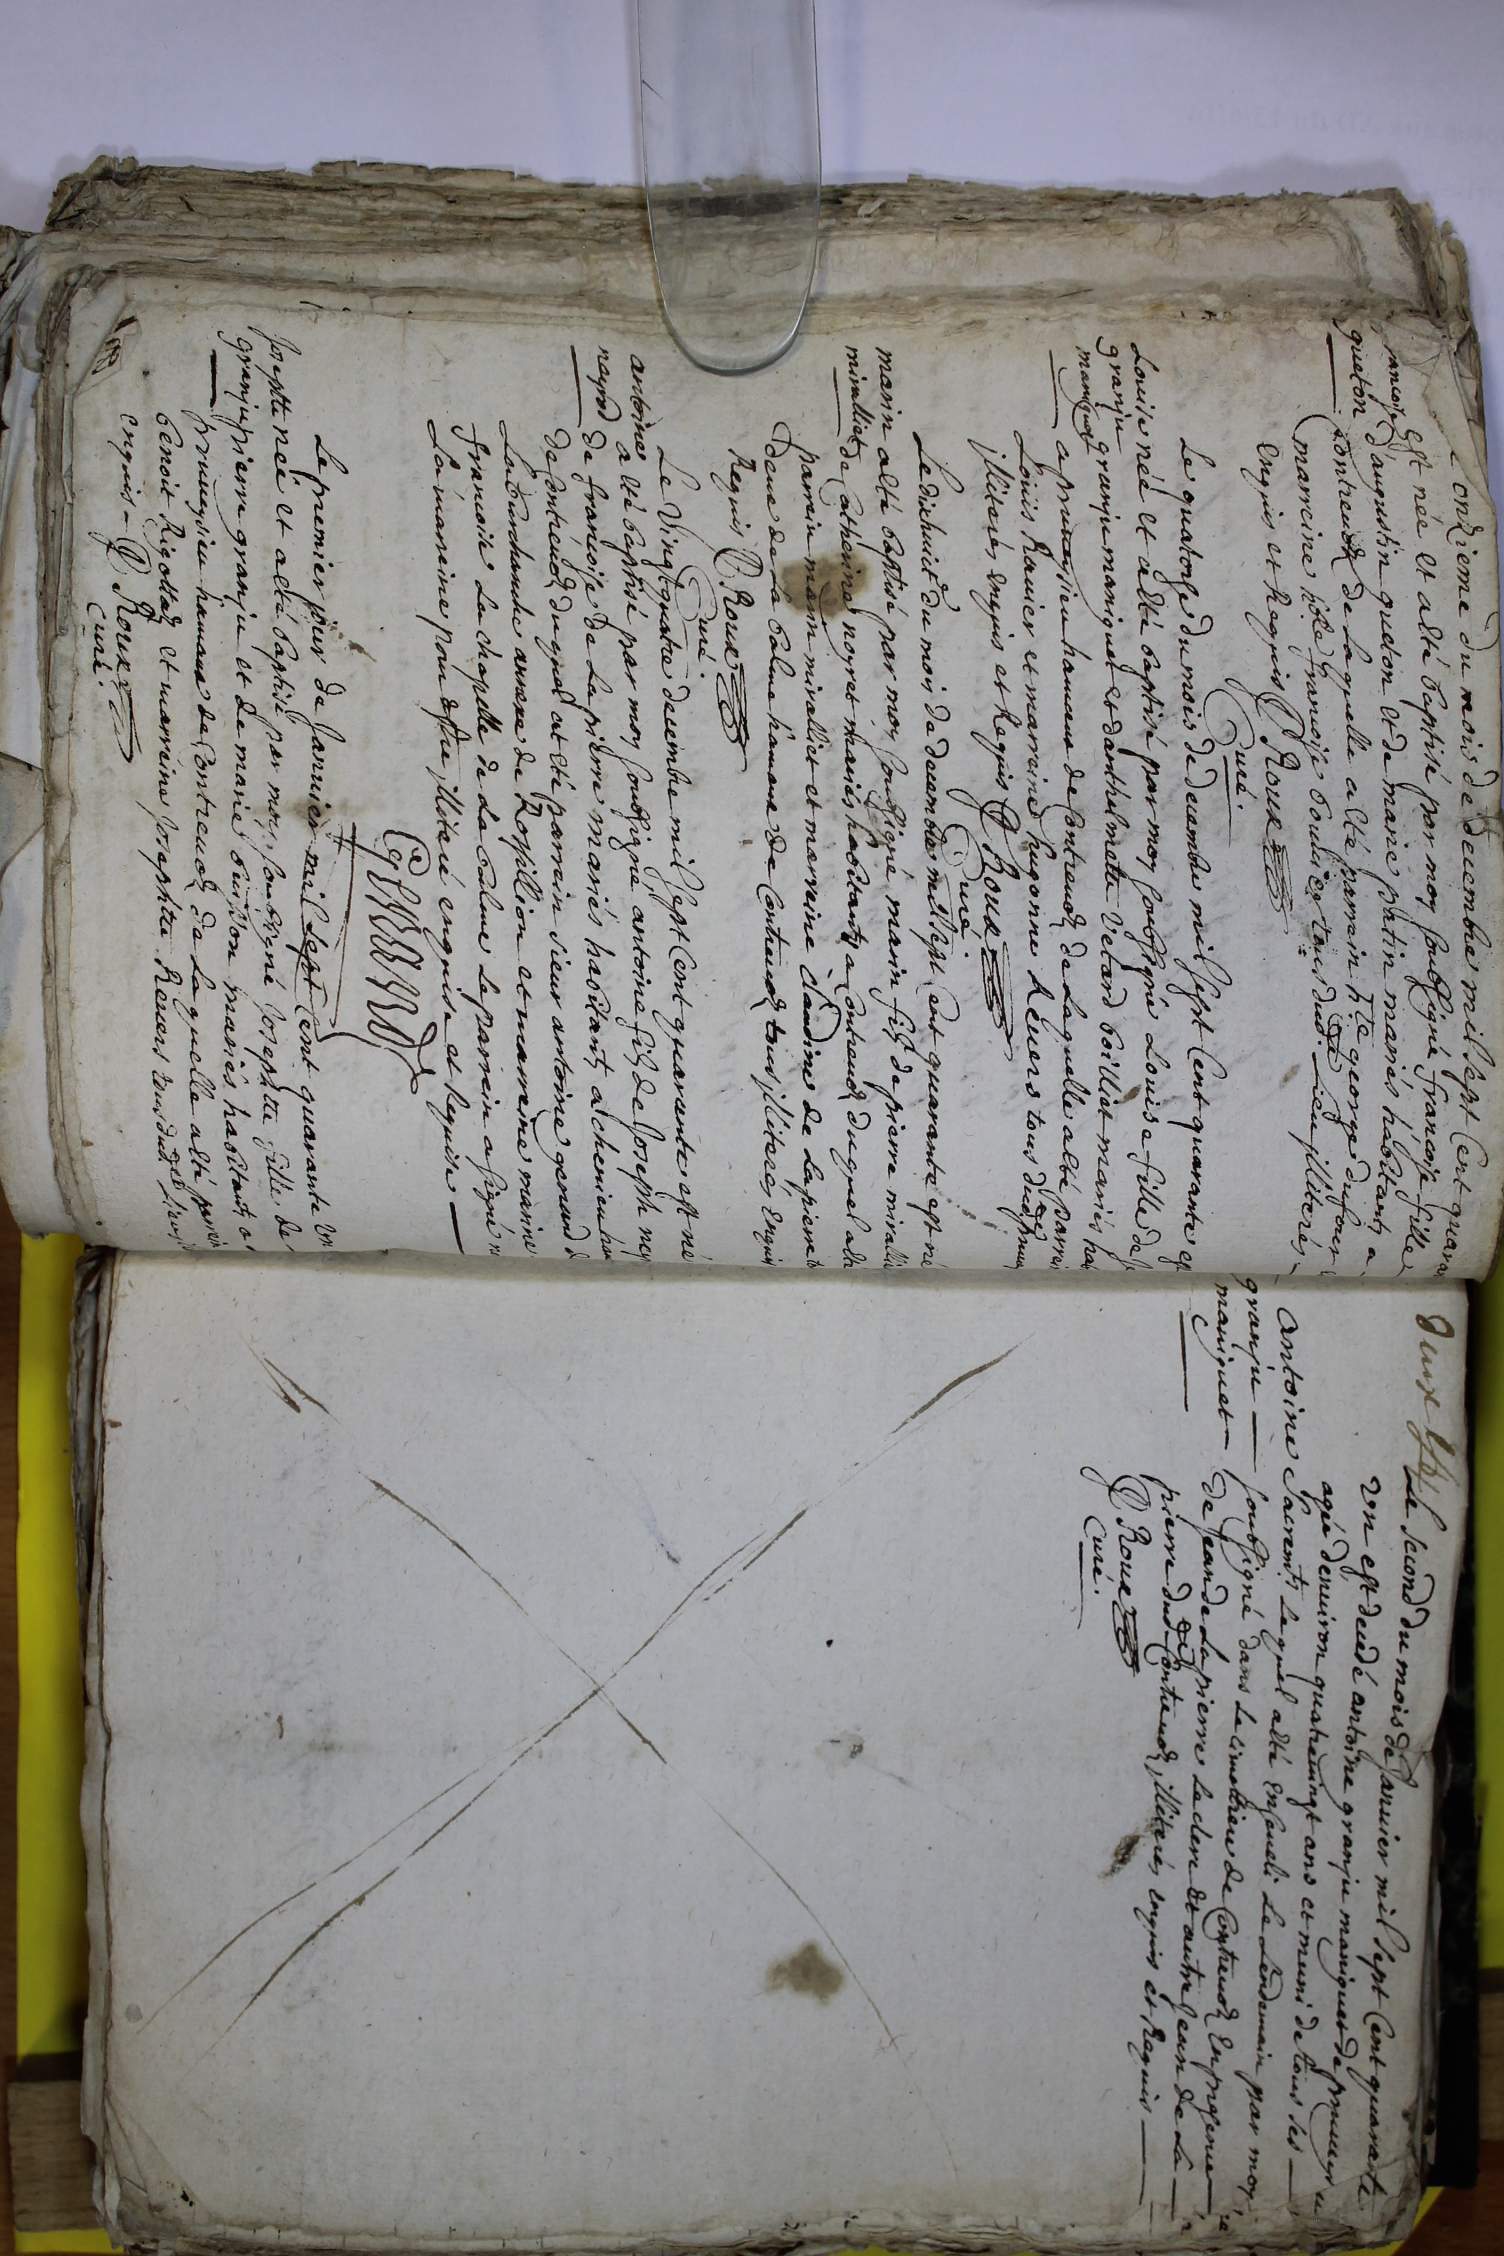 onzieme du mois de decembre mil sept cent quaran
francoise est née et a été baptisé par moy soubsigné francoise fille
gueton d'augustin gueton et de marie mariés habitants a
contrevoz de laquelle a été parrein h.te george dufour
marreine h.te francoise tous dud. lieu illiterés
enquis et Requis Roux
Curé.
Le quatorze du mois de decembre mil sept cent quarante est
Louise née et a été baptisé par moy soubsigné Louise fille de
granju granju maniquet et danthelmette boilliet mariés ha
maniquet
a prumeysieu hameau de Contrevoz de Laquelle a été parrei
Louis et marreine hugonne Reuers tous dud. prum
illiterés enquis et Requis Roux
Curé
Le dixhuit du mois de decembre mil sept cent quarante est né
marin a été baptisé par moy soubsigné, marin fils de pierre miralli
miralliet de Catherine noyret mariés habitants a Contrevoz duquel a été
parrein marin miralliet et marreine claudine de Lapierre
de la balme hameau de Contrevoz tous illiterés enquis
Requis Roux
Curé.
Le vingt quatre decembre mil sept cent quarante est né
antoine a été baptisé par moy soubsigné antoine fils de Joseph ney
neyrod de francoise de Lapierre mariés habitants a chemieu ha
de Contrevoz duquel a été parrein sieur antoine genand d
Laburbanche annexe de Rossillion et marreine marine
francoise La chapelle de La balme Le parrein a signé n
La marreine pour estre illiteré enquise et Requise
Le premier jour de Janvier mil sept Cent quarante un
Josephte née et a été baptisé par moy soubsigné Josephte fille de
granju pierre granju et de marie buisson mariés habitants a
prumeysieu hameau de Contrevoz de Laquelle a été parrei
benoit Rigottaz et marreine Josephte Reuers tous dud.
enquis Roux
Curé.
Le second du mois de Janvier mil sept Cent quarante
un est decedé antoine granju maniquet de prumeysieu
agé denviron quatrevingt ans et muni de tous ses
antoine Sacrements lequel a été enseveli Le Lendemain par moy
granju soubsigné dans le cimetiere de Contrevoz En presence
maniquet de Jean de Lapierre Le clerc et autre Jean de La
pierre dud. Contrevoz illiterés enquis et Requis
Roux
Curé.